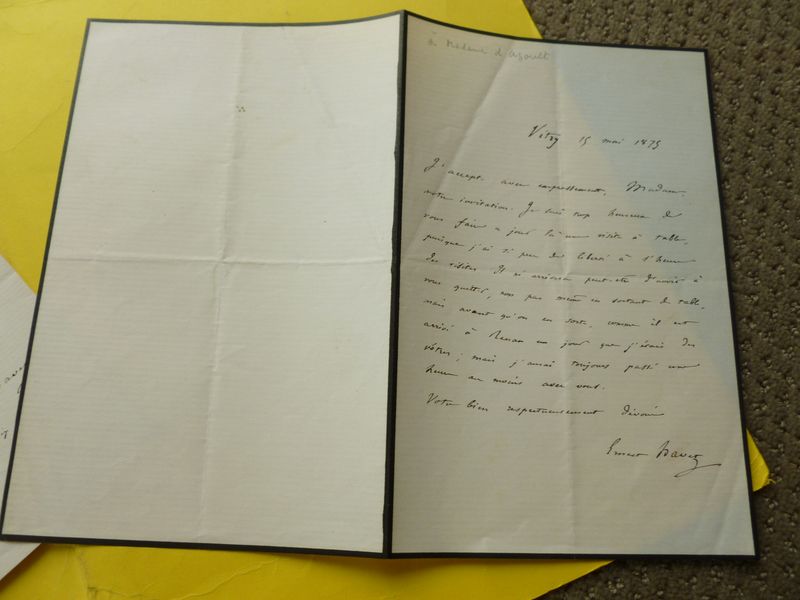 à Madame d'Agoult
Vitry 15 mai 1875
J'accepte avec empressement, Madame,
votre invitation. Je suis trop heureux de
vous faire ce jour là une visite à table,
puisque j'ai si peu de liberté à l'heure
des visites. Il m'arrivera peut-etre d'avoir à
vous quitter, non pas même en sortant de table,
mais avant qu'on en sorte, comme il est
arrivé à Renan un jour que j'étais des
vôtres; mais j'aurai toujours passé une
heure au moins avec vous.
Votre bien respectueusement dévoué
Ernest Havet